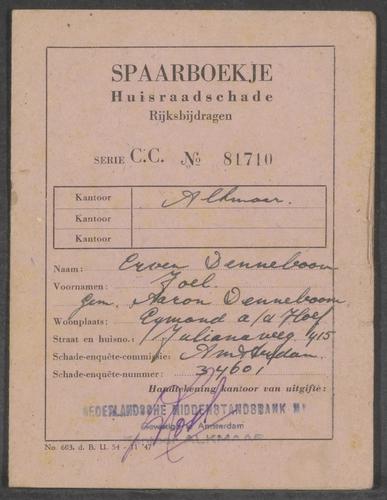 SPAARBOEKJE
Huisraadschade
Rijksbijdragen
SERIE C.C. No 81710
Kantoor Alkmaar.
Kantoor
Kantoor
Naam: Erven Denneboom
Voornamen: Joel.
gem. Aaron Denneboom.
Woonplaats: Egmond a/d Hoef
Straat en huisno.: Julianaweg 415
Schade-enquête-commissie: Amsterdam.
Schade-enquête-nummer: 34601
Handtekening kantoor van uitgifte:
NEDERLANDSCHE MIDDENSTANDSBANK NV
Gevestigd te Amsterdam
ALKMAAR
No. 603. d. B. U. 54 - 11 '47